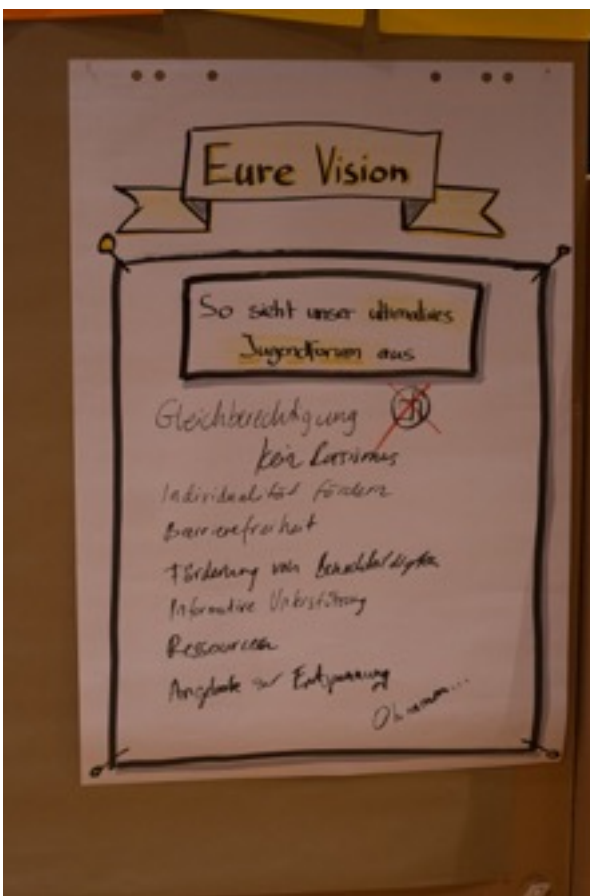 Eure Vision
So sieht unser ultimatives
Jugendforum aus
Gleichberechtigung
kein Rassismus
Individualität fördern
Barrierefreiheit
Förderung von Benachteiligten
Informative Unterstützung
Ressourcen
Angebote zur Entspannung